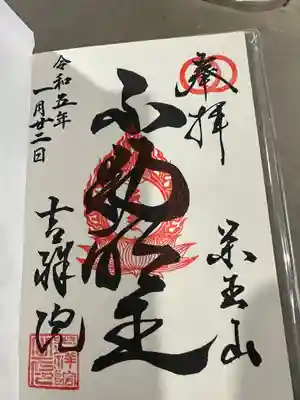 奉拝
山
不動明王
令和五年
一月廿二日
吉祥院